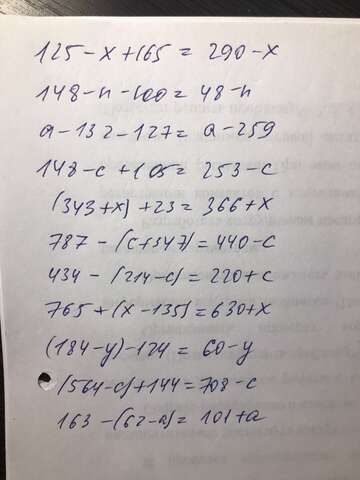 125-x+165=290-x
148-n-100=48-n
a-132-127=a-259
148-c+105=253-c
(343+x)+23=366+x
787-(c+347)=440-c
434-(214-c)=220+c
765+(x-135)=630+x
(184-y)-124=60-y
(564-c)+144=708-c
163-(62-a)=101+a